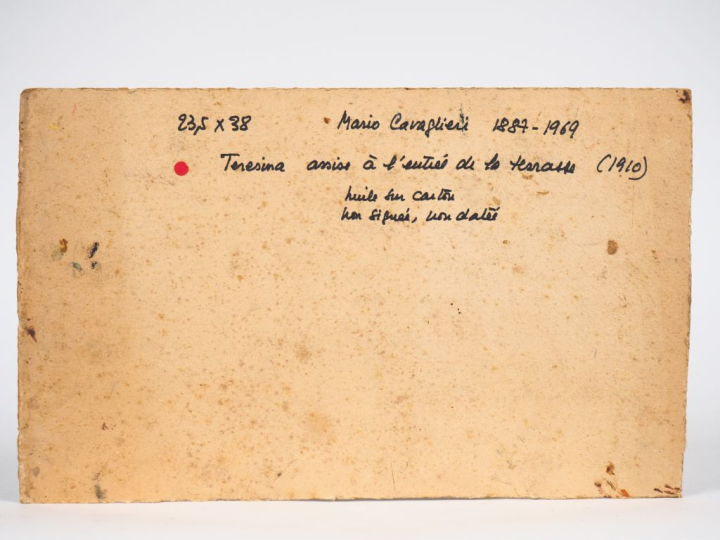 23,5 x 38 Mario Cavaglieri 1887-1969
Teresina assise à l'entrée de la terrasse (1910)
huile sur carton
non signée, non datée